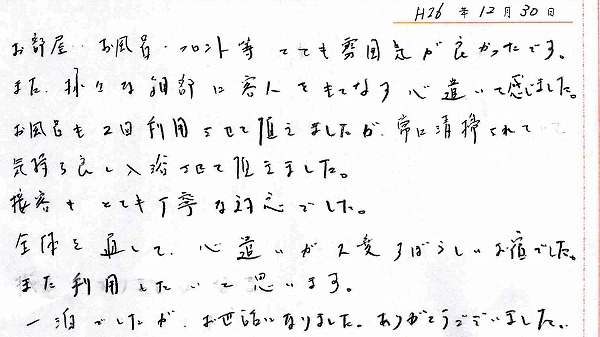 H26 年 12 月 30 日
お部屋・お風呂・フロント等 とても雰囲気が良かったです。
また、様々な細部に客人をもてなす心遣いて感じました。
お風呂も2回利用させて頂きましたが、常に清掃されていて
気持ち良く入浴させて頂きました。
接客も とても丁寧な対応でした。
全体を通して、心遣いが大変すばらしいお宿でした。
また利用したいと思います。
一泊でしたが、お世話になりました。ありがとうございました。